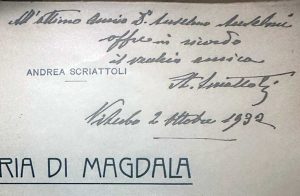 All'ottimo amico Dr. Anselmo Anselmi
offre in ricordo
il vecchio amico
A. Scriattoli
ANDREA SCRIATTOLI
Viterbo 2 ottobre 1932
RIA DI MAGDALA